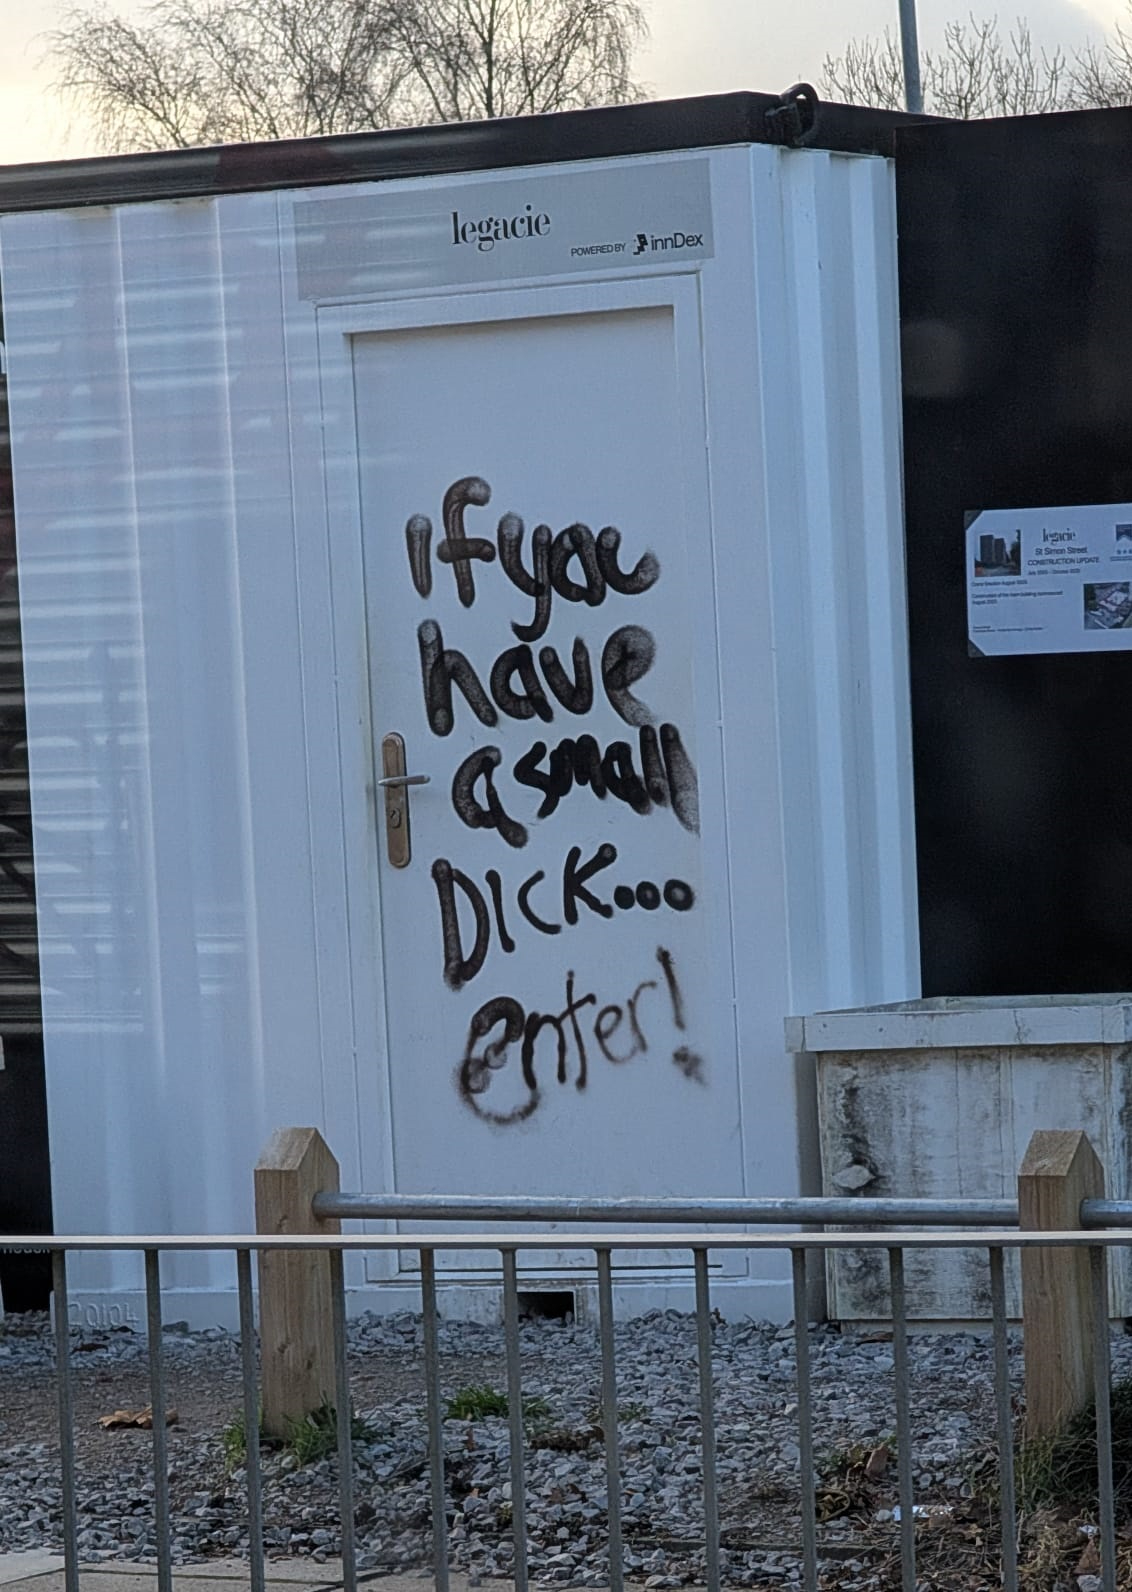 legacie
POWERED BY innDex
if you
have
a small
DICK...
enter!
legacie
St Simon Street
CONSTRUCTION UPDATE
20104